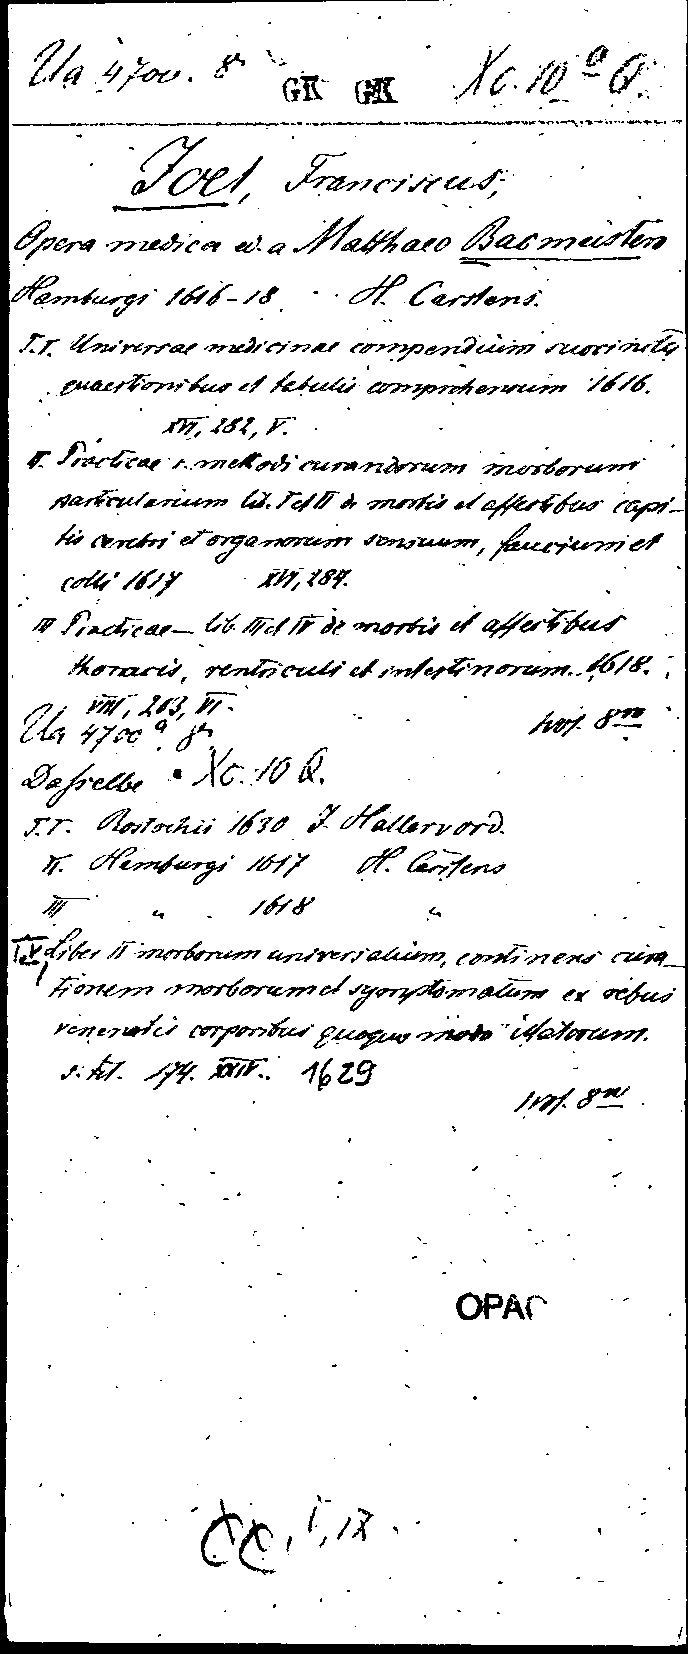 Ua 4700. 8° GK GK Xc. 10 a Q.
Joel, Franciscus,
Opera medica ed. a Matthaeo Bacmeistero
Hamburgi 1616-18 H. Carstens.
T.I. Universae medicinae compendium succinctis
quaestionibus et tabulis comprehensum 1616.
XVI, 282, V.
II. Practicae s. methodi curandorum morborum
particularium lib. I et II de morbis et affectibus capi-
tis cerebri et organorum sensuum, faucium et
colli 1617 XVI, 287.
III Practicae - lib. III et IV de morbis et affectibus
thoracis, ventriculi et intestinorum. 1618.
VIII, 203, VI.
Ua 4700 a. 8° 8vo
Dasselbe Xc. 10 Q.
T.I. Rostochii 1630 J. Hallervord.
II. Hamburgi 1617 H. Carstens
III " 1618 "
T.V, Liber II morborum universalium, continens cura-
tionem morborum et symptomatum ex rebus
venenatis corporibus quoquo modo illatorum.
s. tit. 174. XXIV. 1629
8vo
OPAC